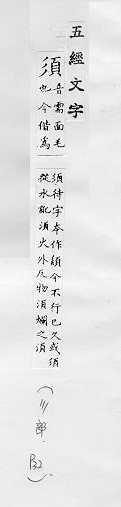 五經文字
須
音需面毛
也今借爲
須待字本作頾今不行已久或須
從水虵須火外反物須爛之須
(彡部.
B32)